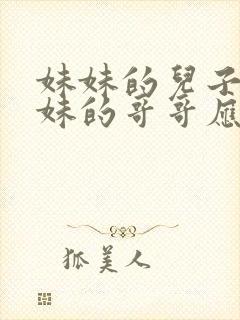 妹妹的兒子
妹的哥哥應
狐美人